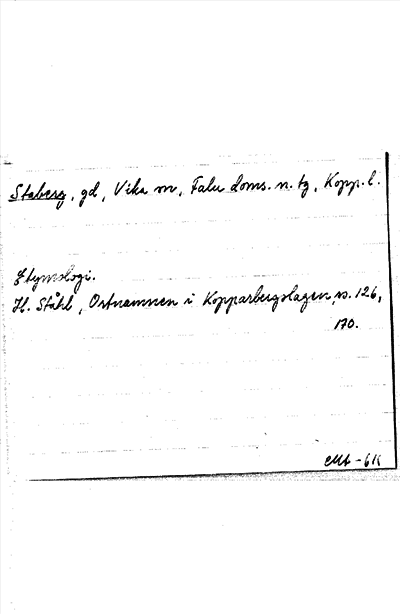 Staberg, gd, Vika sn, Falu doms. n. tg, Kopp. l.
Etymologi.
H. Ståhl, Ortnamnen i Kopparbergslagen, s. 126,
170.